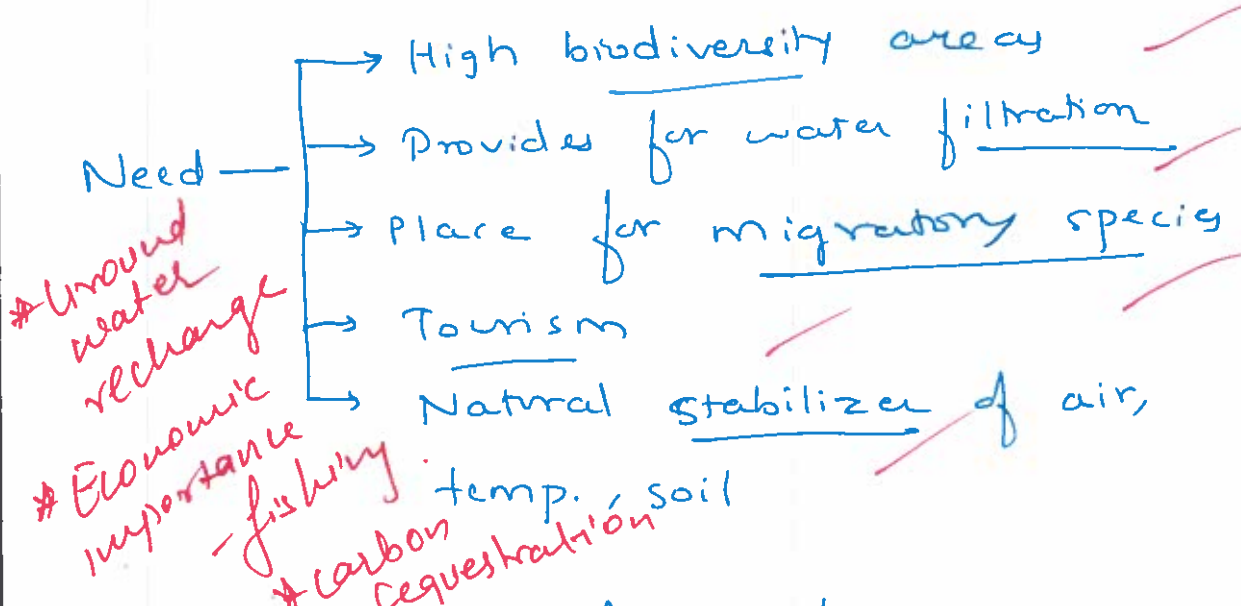 High biodiversity areas
Provides for water filtration
Need
Place for migratory species
Tourism
Natural stabilizer of air,
temp., soil
* Ground
water
recharge
* Economic
importance
- fishing
* carbon
sequestration